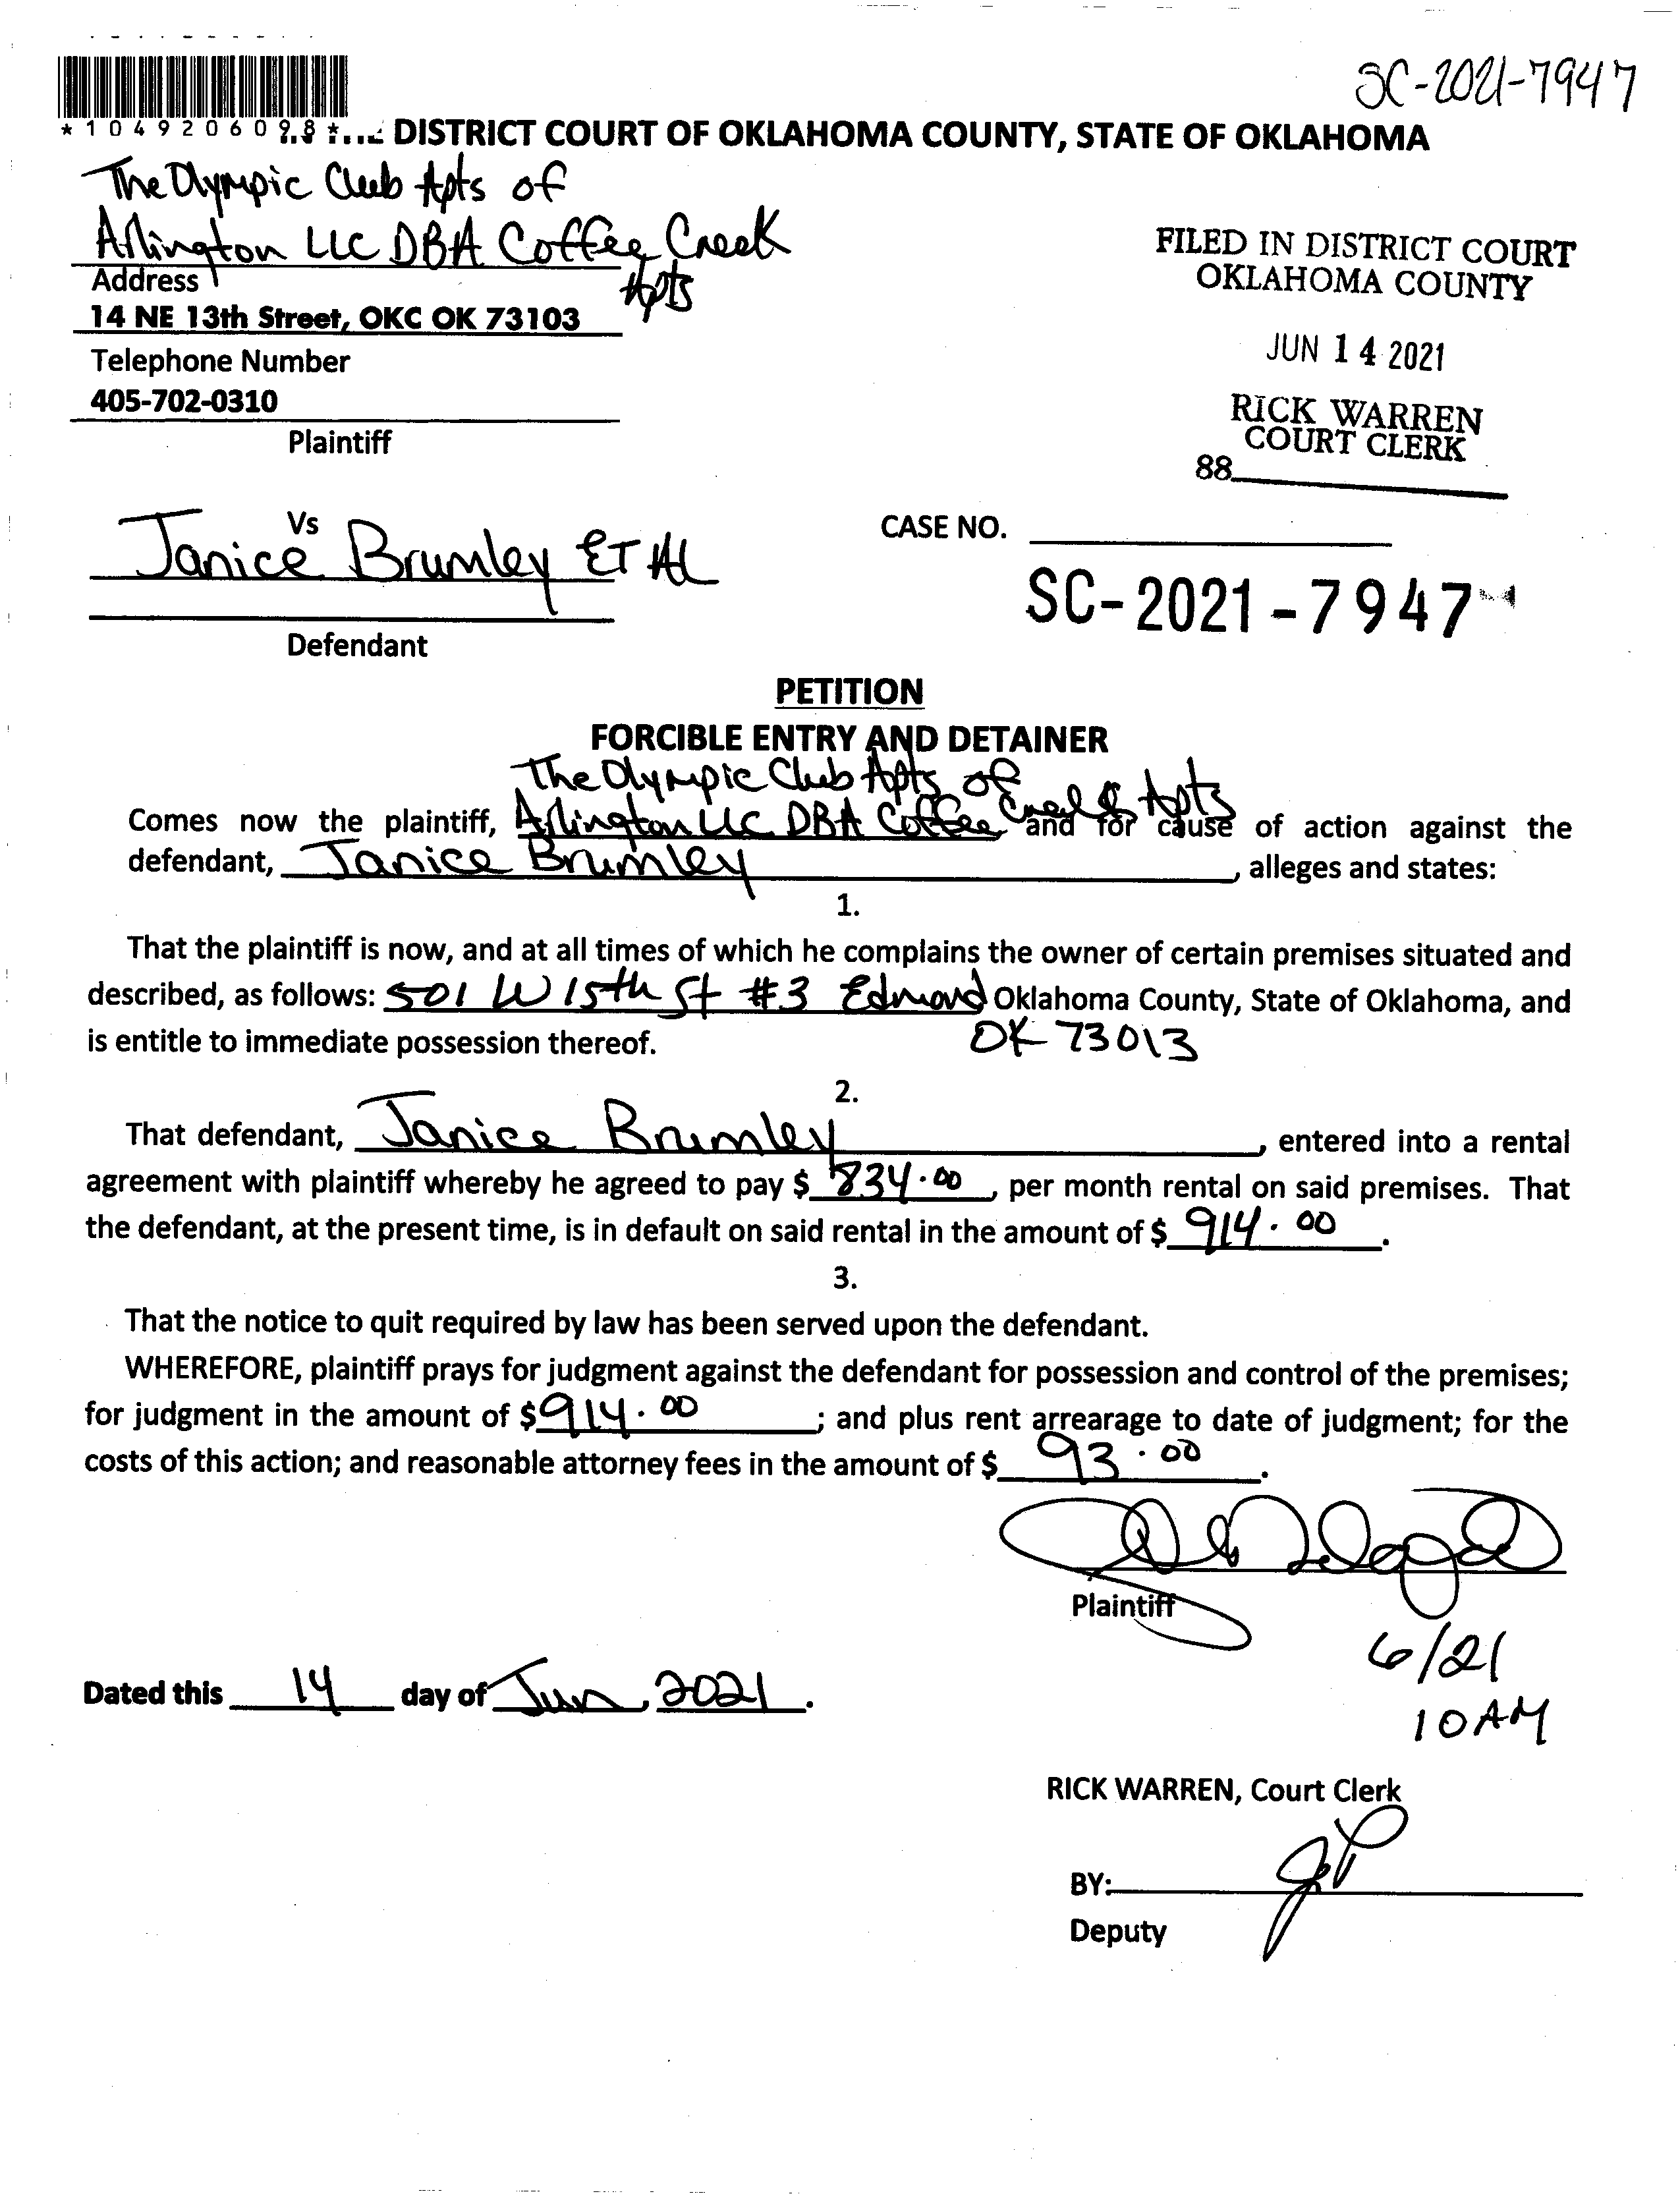 SC-2021-7947
*1049206098*
DISTRICT COURT OF OKLAHOMA COUNTY, STATE OF OKLAHOMA
The Olympic Club Apts of
Arlington LLC DBA Coffee Creek
Apts
Address
14 NE 13th Street, OKC OK 73103
Telephone Number
405-702-0310
Plaintiff
FILED IN DISTRICT COURT
OKLAHOMA COUNTY
JUN 14 2021
RICK WARREN
COURT CLERK
88
Vs
Janice Brumley ET AL
Defendant
CASE NO.
SC-2021-7947
PETITION
FORCIBLE ENTRY AND DETAINER
The Olympic Club Apts of
Comes now the plaintiff, Arlington LLC DBA Coffee Creek Apts and for cause of action against the
defendant, Janice Brumley, alleges and states:
1.
That the plaintiff is now, and at all times of which he complains the owner of certain premises situated and
described, as follows: 501 W 15th St #3 Edmond Oklahoma County, State of Oklahoma, and
is entitle to immediate possession thereof. OK 73013
2.
That defendant, Janice Brumley, entered into a rental
agreement with plaintiff whereby he agreed to pay $ 834.00, per month rental on said premises. That
the defendant, at the present time, is in default on said rental in the amount of $ 914.00.
3.
That the notice to quit required by law has been served upon the defendant.
WHEREFORE, plaintiff prays for judgment against the defendant for possession and control of the premises;
for judgment in the amount of $914.00; and plus rent arrearage to date of judgment; for the
costs of this action; and reasonable attorney fees in the amount of $ 93.00.
Plaintiff
6/21
10 AM
Dated this 14 day of Jun, 2021.
RICK WARREN, Court Clerk
BY:
Deputy